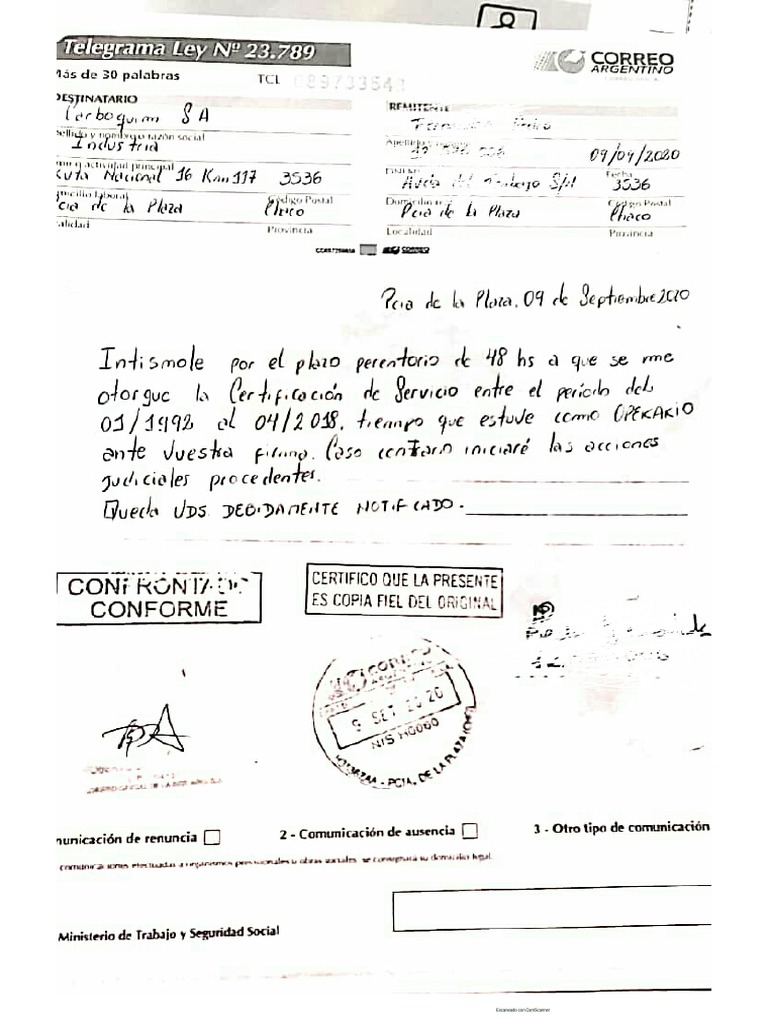 Telegrama Ley Nº 23.789
Más de 30 palabras
TCL 089733543
CORREO
ARGENTINO
DESTINATARIO
Carboquim SA
Apellido y nombre o razón social
Industria
Ramo o actividad principal
Ruta Nacional 16 Km 117 3536
Domicilio laboral Código Postal
Pcia de la Plaza Chaco
Localidad Provincia
REMITENTE
09/09/2020
Fecha
Avda del Trabajo S/N 3536
Código Postal
Pcia de la Plaza Chaco
Localidad Provincia
CORREO
Pcia de la Plaza, 09 de Septiembre 2020
Intismole por el plazo perentorio de 48 hs a que se me
otorgue la Certificación de Servicio entre el período del
01/1992 al 04/2018, tiempo que estuve como OPERARIO
ante vuestra firma. Caso contrario iniciaré las acciones
judiciales procedentes.
Queda UDS DEBIDAMENTE NOTIFICADO.
CONFRONTADO
CONFORME
CERTIFICO QUE LA PRESENTE
ES COPIA FIEL DEL ORIGINAL
CORREO
9 SET 2020
NIS H0060
PCIA. DE LA PLAZA
municación de renuncia
2 - Comunicación de ausencia
3 - Otro tipo de comunicación
comunicaciones efectuadas a organismos previsionales u obras sociales se consignará su domicilio legal.
Ministerio de Trabajo y Seguridad Social
Escaneado con CamScanner